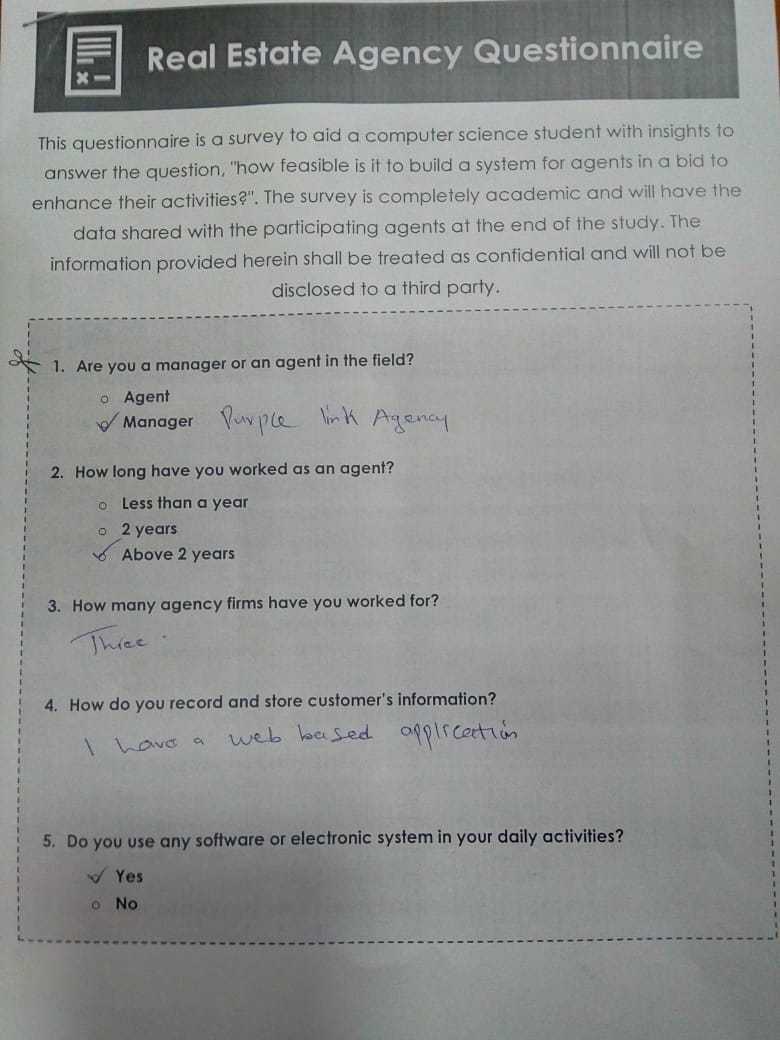 Real Estate Agency Questionnaire
This questionnaire is a survey to aid a computer science student with insights to
answer the question, "how feasible is it to build a system for agents in a bid to
enhance their activities?". The survey is completely academic and will have the
data shared with the participating agents at the end of the study. The
information provided herein shall be treated as confidential and will not be
disclosed to a third party.
1. Are you a manager or an agent in the field?
Agent
Manager Purple link Agency
2. How long have you worked as an agent?
Less than a year
2 years
Above 2 years
3. How many agency firms have you worked for?
Three.
4. How do you record and store customer's information?
I have a web based application
5. Do you use any software or electronic system in your daily activities?
Yes
No